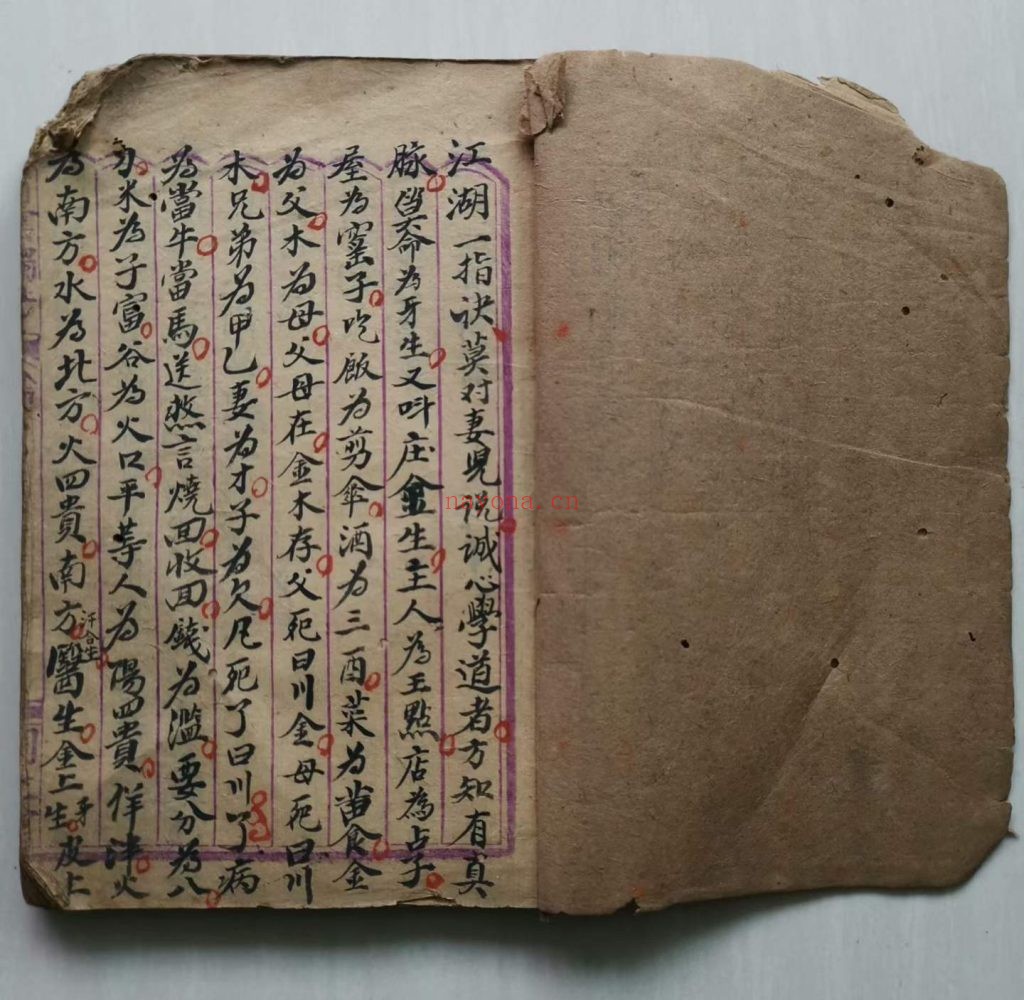 江湖一指诀莫对妻児说诚心學道者方知有真
脉為牙生又呌庄金生主人為王點店為占子
屋為窰子吃飯為剪傘酒為三酉菜為苗食金
為父木為母父母在金木存父死曰川金母死曰川
木兄弟為甲乙妻為才子為欠尺死了曰川了病
為當牛當馬送言燒回收回錢為濫要分為八
分米為子富谷為火口平等人為陽四貴佯津火
為南方水為北方火四貴南方醫生金上生皮上
汗合生
nayona.cn